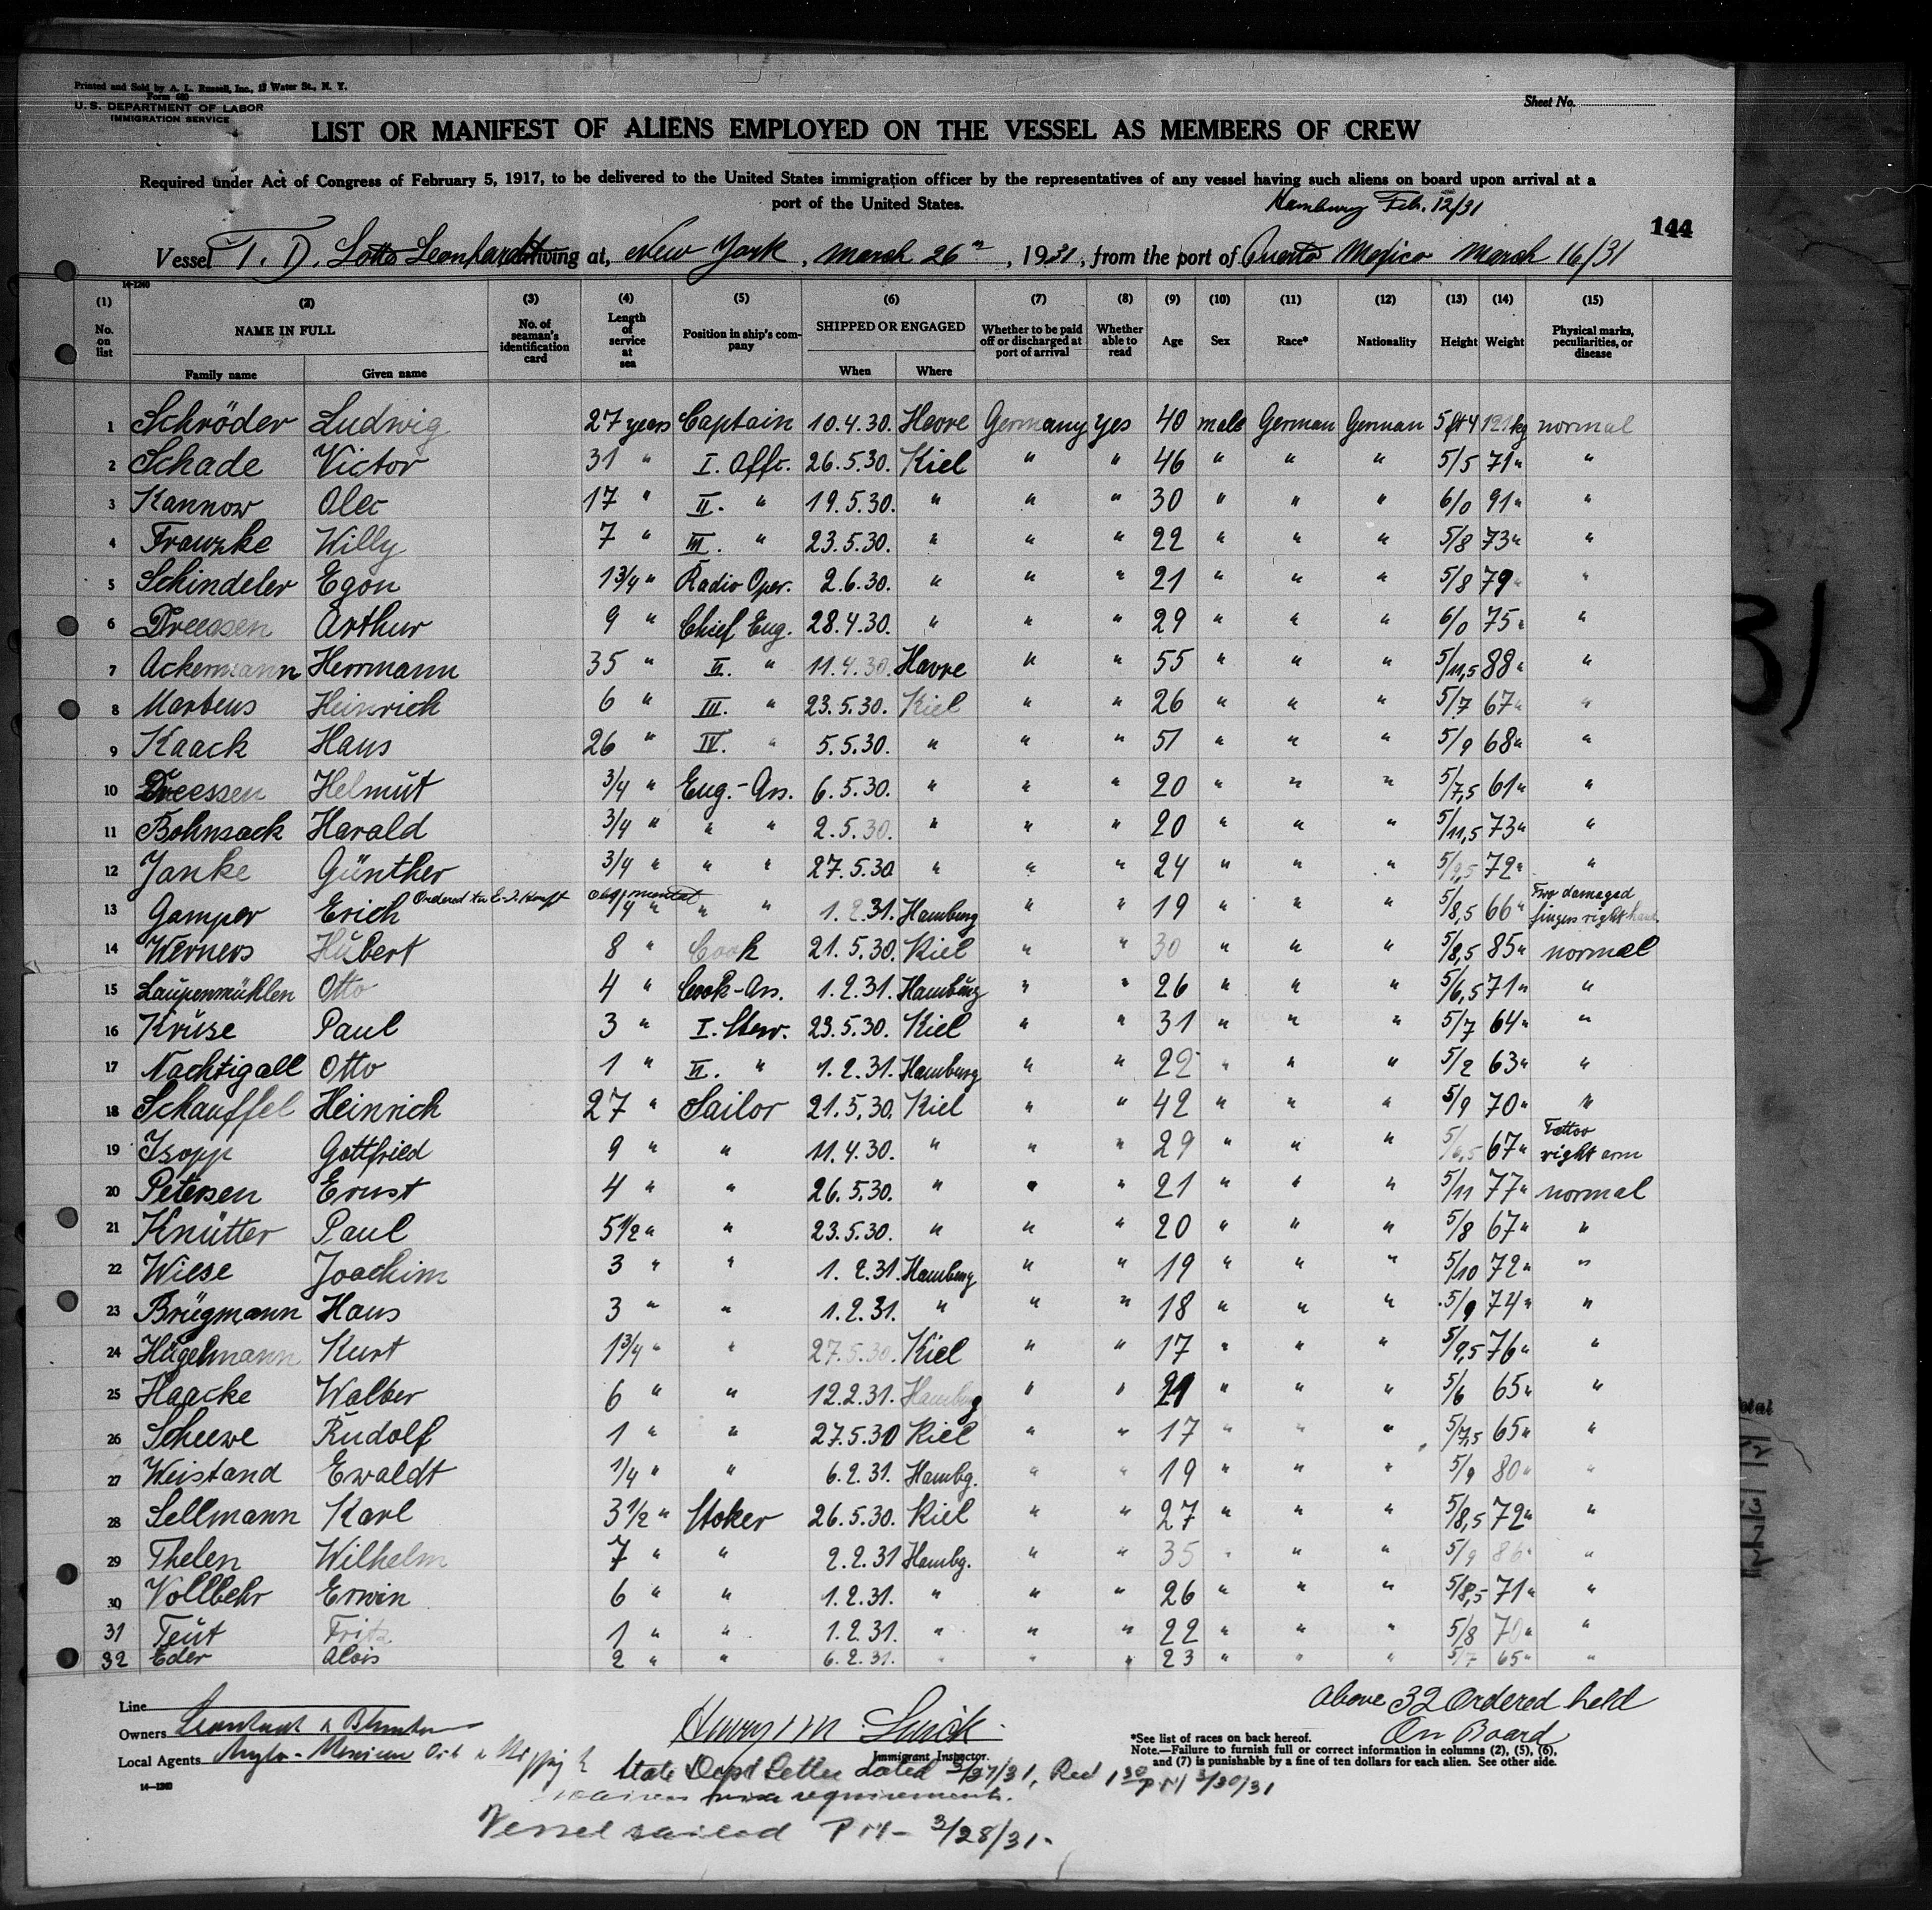 Printed and Sold by A. L. Russell, Inc., 13 Water St., N. Y.
Form 680
U. S. DEPARTMENT OF LABOR
IMMIGRATION SERVICE
Sheet No.
LIST OR MANIFEST OF ALIENS EMPLOYED ON THE VESSEL AS MEMBERS OF CREW
Required under Act of Congress of February 5, 1917, to be delivered to the United States immigration officer by the representatives of any vessel having such aliens on board upon arrival at a
port of the United States.
Hamburg Feb. 12/31
144
Vessel T. D. Lotte Leonhardt arriving at, New York, March 26th, 1931, from the port of Puerto Mexico March 16/31
14-1240
(1) (2) (3) (4) (5) (6) (7) (8) (9) (10) (11) (12) (13) (14) (15)
No. on list NAME IN FULL No. of seaman's identification card Length of service at sea Position in ship's company SHIPPED OR ENGAGED Whether to be paid off or discharged at port of arrival Whether able to read Age Sex Race* Nationality Height Weight Physical marks, peculiarities, or disease
Family name Given name When Where
1 Schröder Ludwig 27 years Captain 10.4.30. Havre Germany yes 40 male German German 5 ft 4 121 kg normal
2 Schade Victor 31 " I. Offc. 26.5.30. Kiel " " 46 " " " 5/5 71 " "
3 Kannow Olec 17 " II. " 19.5.30. " " " 30 " " " 6/0 91 " "
4 Franzke Willy 7 " III. " 23.5.30. " " " 22 " " " 5/8 73 " "
5 Schindeler Egon 1 3/4 " Radio Oper. 2.6.30. " " " 21 " " " 5/8 79 " "
6 Dreessen Arthur 9 " Chief Eng. 28.4.30. " " " 29 " " " 6/0 75 " "
7 Ackermann Herrmann 35 " II. " 11.4.30. Havre " " 55 " " " 5/11,5 88 " "
8 Martens Heinrich 6 " III. " 23.5.30. Kiel " " 26 " " " 5/7 67 " "
9 Kaack Hans 26 " IV. " 5.5.30. " " " 51 " " " 5/9 68 " "
10 Dreessen Helmut 3/4 " Eug.-Ass. 6.5.30. " " " 20 " " " 5/7,5 61 " "
11 Bohnsack Harald 3/4 " " " 2.5.30. " " " 20 " " " 5/11,5 73 " "
12 Janke Günther 3/4 " " " 27.5.30 " " " 24 " " " 5/9,5 72 " "
13 Gamper Erich 1/4 " " " 1.2.31. Hamburg " " 19 " " " 5/8,5 66 " Two damaged fingers right hand
14 Werners Hubert 8 " Cook 21.5.30. Kiel " " 30 " " " 5/8,5 85 " normal
15 Laupenmühlen Otto 4 " Cook-Ass. 1.2.31. Hamburg " " 26 " " " 5/6,5 71 " "
16 Kruse Paul 3 " I. Stew. 23.5.30. Kiel " " 31 " " " 5/7 64 " "
17 Nachtigall Otto 1 " II. " 1.2.31. Hamburg " " 22 " " " 5/2 63 " "
18 Schauffel Heinrich 27 " Sailor 21.5.30. Kiel " " 42 " " " 5/9 70 " "
19 Isopp Gottfried 9 " " 11.4.30. " " " 29 " " " 5/6,5 67 " Tattoo right arm
20 Petersen Ernst 4 " " 26.5.30. " " " 21 " " " 5/11 77 " normal
21 Knütter Paul 5 1/2 " " 23.5.30. " " " 20 " " " 5/8 67 " "
22 Wiese Joachim 3 " " 1.2.31. Hamburg " " 19 " " " 5/10 72 " "
23 Brügmann Hans 3 " " 1.2.31. " " " 18 " " " 5/9 74 " "
24 Hügelmann Kurt 1 3/4 " " 27.5.30. Kiel " " 17 " " " 5/9,5 76 " "
25 Haacke Walter 6 " " 12.2.31. Hamburg " " 21 " " " 5/6 65 " "
26 Scheewe Rudolf 1 " " 27.5.30 Kiel " " 17 " " " 5/7,5 65 " "
27 Weistand Ewaldt 1/4 " " 6.2.31. Hambg. " " 19 " " " 5/9 80 " "
28 Sellmann Karl 3 1/2 " Stoker 26.5.30. Kiel " " 27 " " " 5/8,5 72 " "
29 Thelen Wilhelm 7 " " 2.2.31 Hambg. " " 35 " " " 5/9 86 " "
30 Vollbehr Erwin 6 " " 1.2.31. " " " 26 " " " 5/8,5 71 " "
31 Teut Fritz 1 " " 1.2.31. " " " 22 " " " 5/8 70 " "
32 Eder Alois 2 " " 6.2.31. " " " 23 " " " 5/7 65 " "
Line
Above 32 Ordered held
On Board
Owners
Local Agents Anglo-Mexican
Immigrant Inspector.
*See list of races on back hereof.
Note.—Failure to furnish full or correct information in columns (2), (5), (6),
and (7) is punishable by a fine of ten dollars for each alien. See other side.
14—1240
State Dept Letter dated 3/27/31, Recd 1 30 PM 3/30/31
visa requirements.
Vessel sailed PM - 3/28/31-